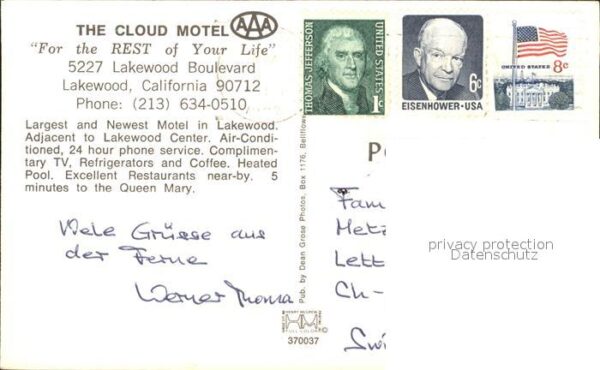 THE CLOUD MOTEL
AAA
"For the REST of Your Life"
5227 Lakewood Boulevard
Lakewood, California 90712
Phone: (213) 634-0510
Largest and Newest Motel in Lakewood.
Adjacent to Lakewood Center. Air-Condi-
tioned, 24 hour phone service. Complimen-
tary TV, Refrigerators and Coffee. Heated
Pool. Excellent Restaurants near-by. 5
minutes to the Queen Mary.
Viele Grüsse aus
der Ferne
Werner Thoma
Pub. by Dean Grose Photos, Box 1176, Bellflower
HM
370037
THOMAS JEFFERSON
UNITED STATES
1c
6c
EISENHOWER·USA
UNITED STATES 8c
Fam
Metz
Lett
Ch-
Swi
privacy protection
Datenschutz